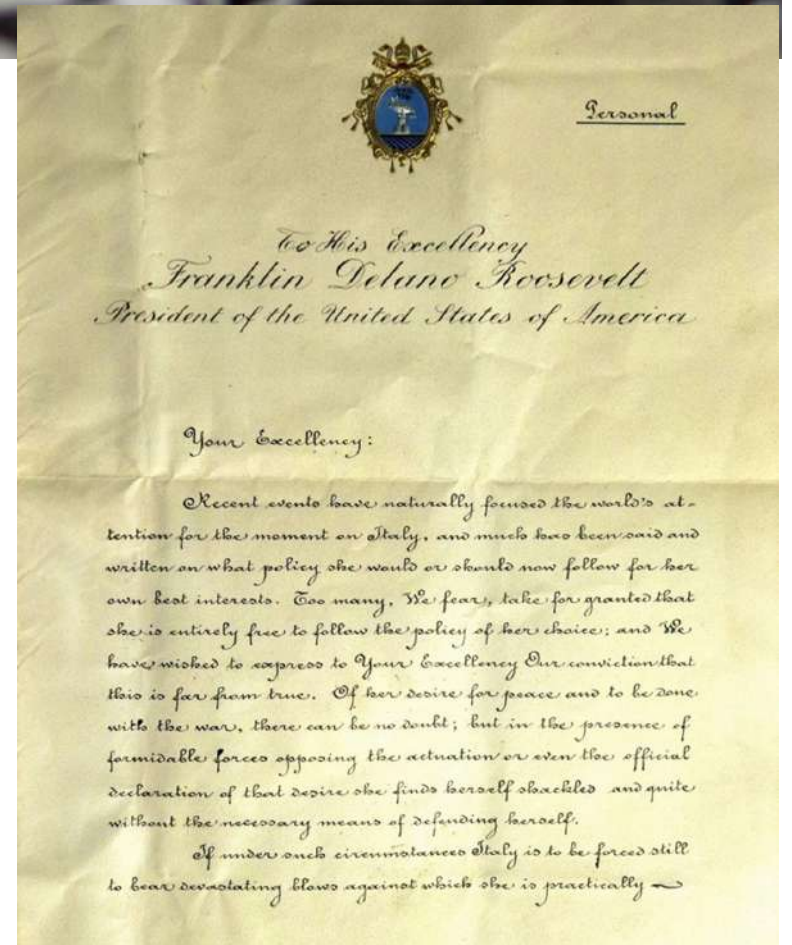 Personal
To His Excellency
Franklin Delano Roosevelt
President of the United States of America
Your Excellency:
Recent events have naturally focused the world's at-
tention for the moment on Italy, and much has been said and
written on what policy she would or should now follow for her
own best interests. Too many, We fear, take for granted that
she is entirely free to follow the policy of her choice; and We
have wished to express to Your Excellency Our conviction that
this is far from true. Of her desire for peace and to be done
with the war, there can be no doubt; but in the presence of
formidable forces opposing the actuation or even the official
declaration of that desire she finds herself shackled and quite
without the necessary means of defending herself.
If under such circumstances Italy is to be forced still
to bear devastating blows against which she is practically